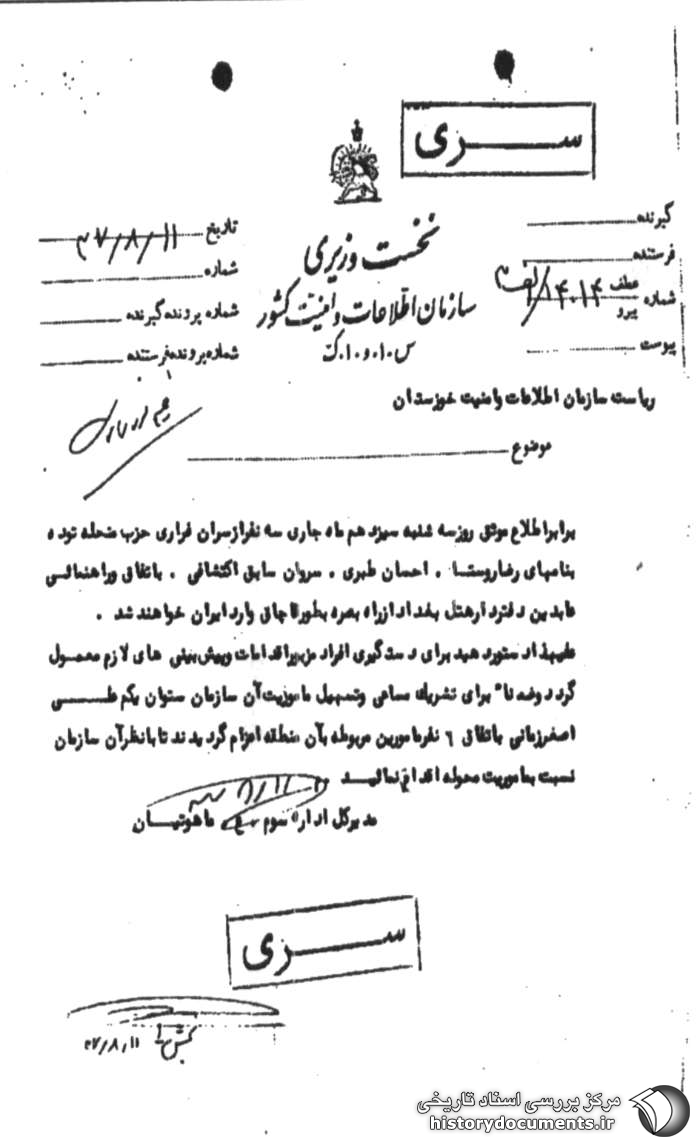 سری
نخست وزیری
سازمان اطلاعات و امنیت کشور
س.ا.و.ا.ک
گیرنده
فرستنده
شماره عطف پیرو ۱۴۰۱۴/
پیوست
تاریخ ۴۷/۸/۱۱
شماره
شماره پرونده گیرنده
شماره پرونده فرستنده
ریاست سازمان اطلاعات و امنیت خوزستان
موضوع
برابر اطلاع موثق روز سه شنبه سیزدهم ماه جاری سه نفر از سران فراری حزب منحله توده
بنامهای رضا روستا ، احسان طبری ، سروان سابق اکتشافی ، باتفاق و راهنمائی
عابدین دفتردار هتل بغداد از راه بصره بطور قاچاق وارد ایران خواهند شد .
علیهذا دستور دهید برای دستگیری افراد مزبور اقدامات و پیش بینی های لازم معمول
گردد وضمنا" برای تشریک مساعی وتسهیل ماموریت آن سازمان ستوان یکم
اصغر زمانی باتفاق ٦ نفر مامورین مربوطه بآن منطقه اعزام گردیدند تا با نظر آن سازمان
نسبت بماموریت محوله اقدام نمایند
مدیر کل اداره سوم
۸/۱۱
سری
بخش
۴۷/۸/۱۱
مرکز بررسی اسناد تاریخی
historydocuments.ir